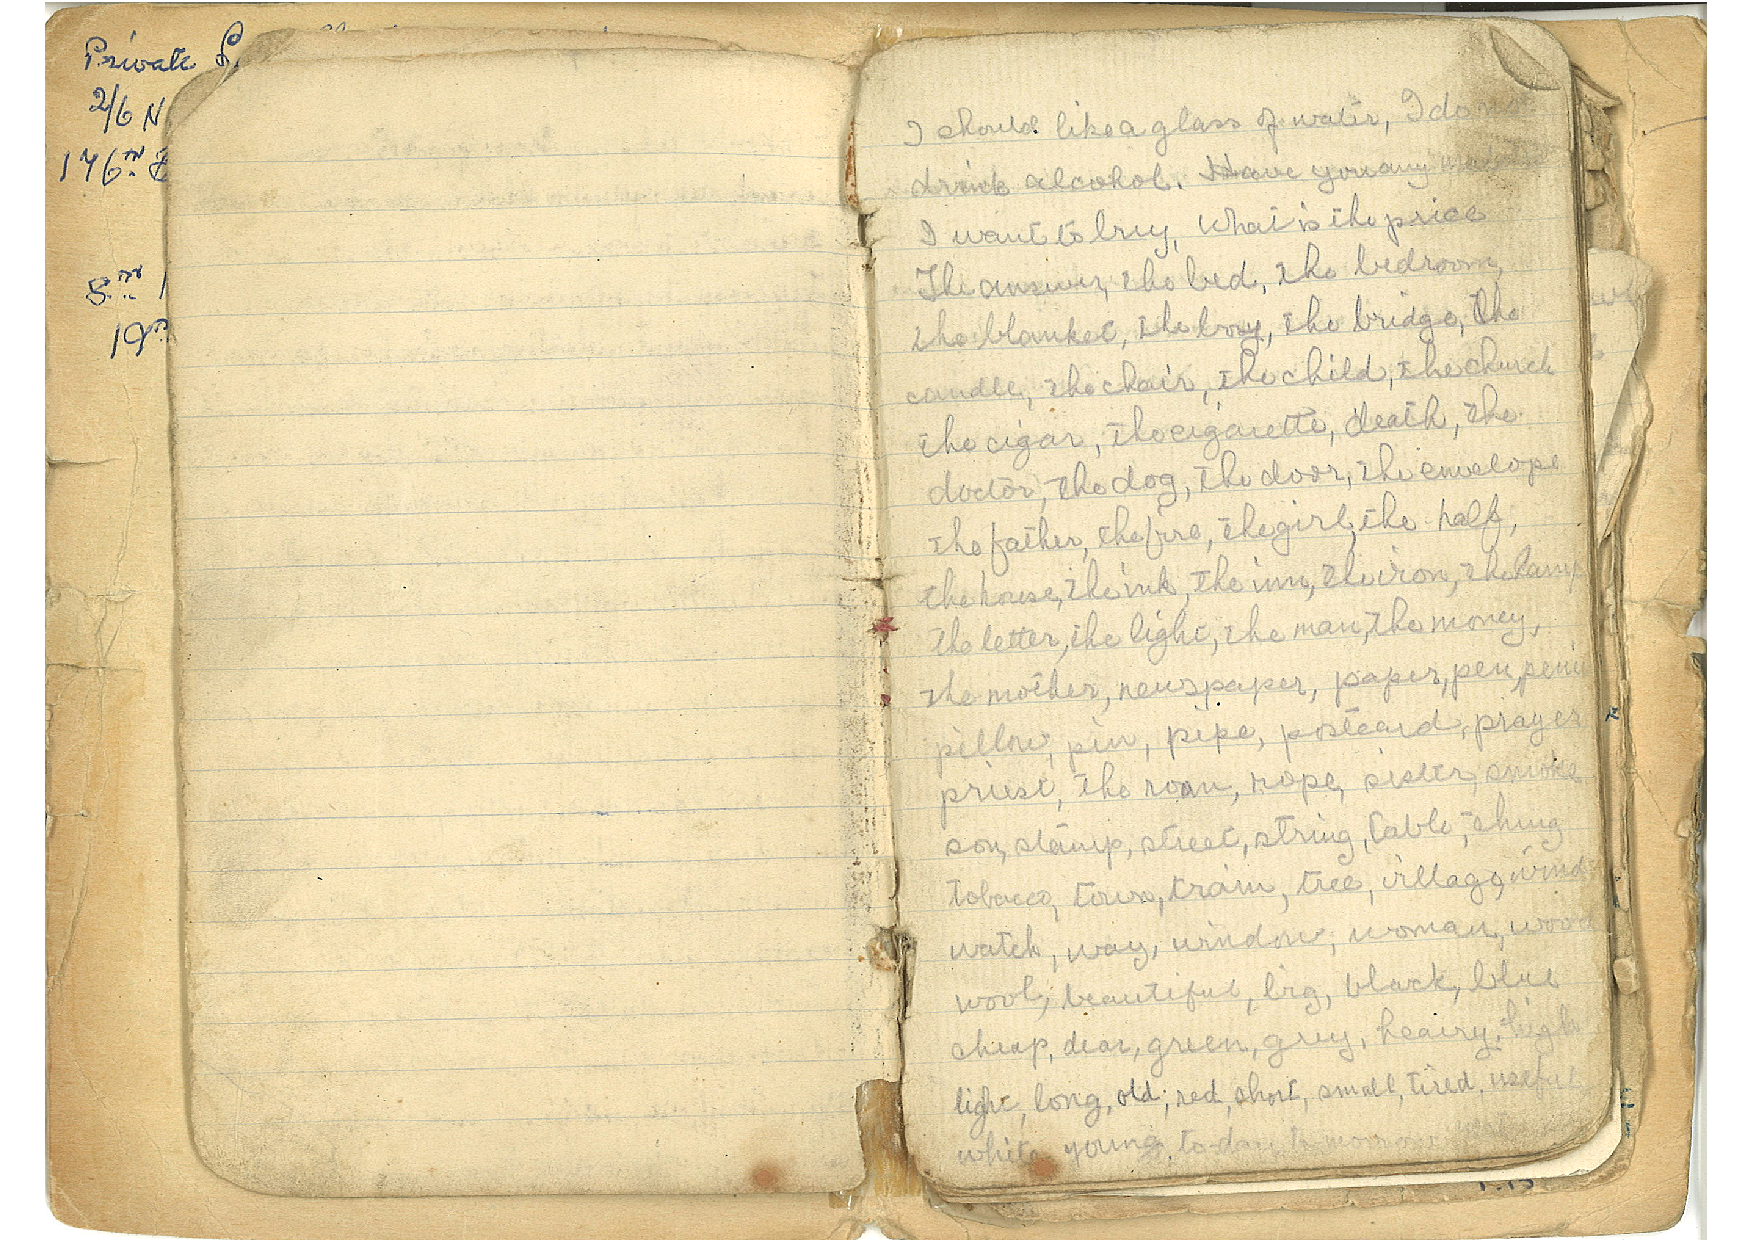 Private
2/6 N
176th
5th
19th
I should like a glass of water, I do not
drink alcohol. Have you any
I want to buy, What is the price
The answer, the bed, the bedroom,
the blanket, the boy, the bridge, the
candle, the chair, the child, the church
the cigar, the cigarette, death, the
doctor, the dog, the door, the envelope
the father, the fire, the girl, the half,
the house, the ink, the inn, the iron, the lamp
the letter, the light, the man, the money,
the mother, newspaper, paper, pen,
pillow, pin, pipe, postcard, prayer
priest, the roan, rope, sister, smoke
son, stamp, street, string, table, thing
tobacco, town, train, tree, village, wind
watch, way, window, woman, wood
wool, beautiful, big, black, blue
cheap, dear, green, grey, heavy, high
light, long, old, red, short, small, tired, useful
white, young, to-day, to-morrow